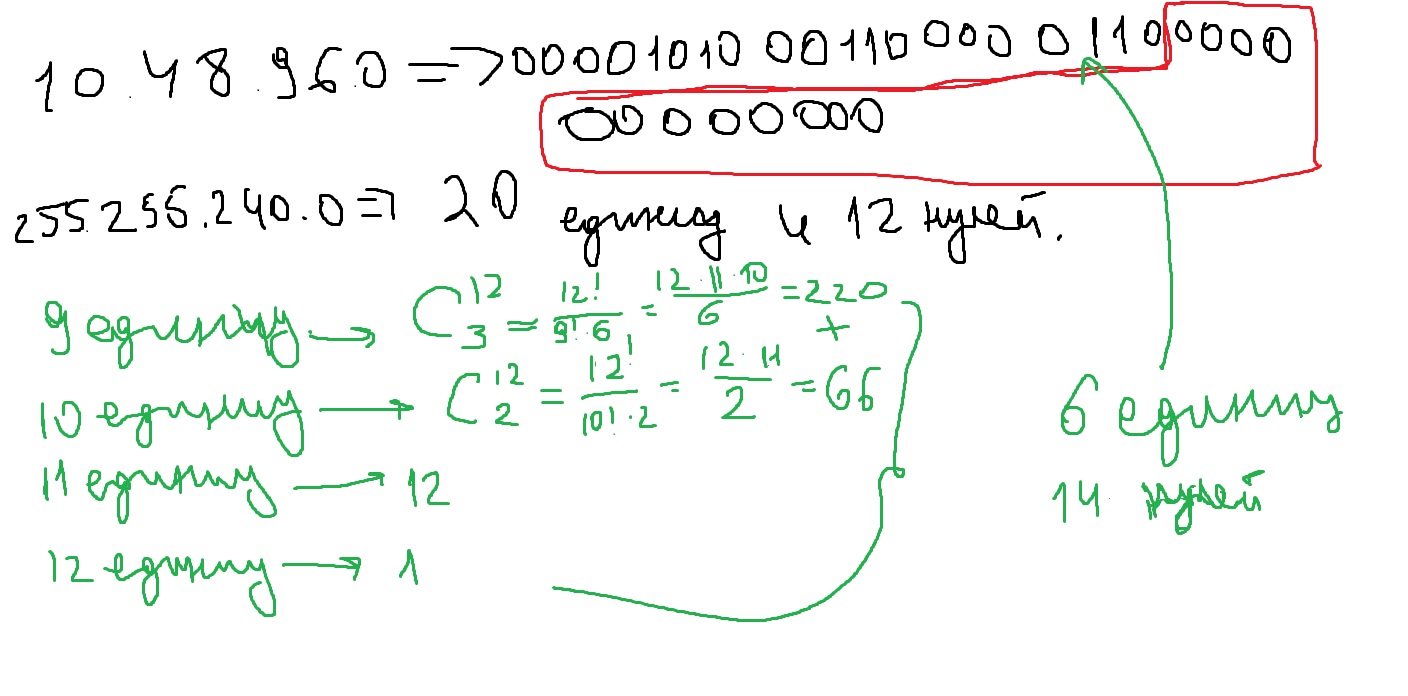 10.48.960 => 00001010 00110000 01100000
00000000
255.255.240.0 => 20 единиц и 12 нулей.
9 единиц → C₃¹² = 12!/(9!·6) = (12·11·10)/6 = 220
+
10 единиц → C₂¹² = 12!/(10!·2) = (12·11)/2 = 66
6 единиц
11 единиц → 12
14 нулей
12 единиц → 1